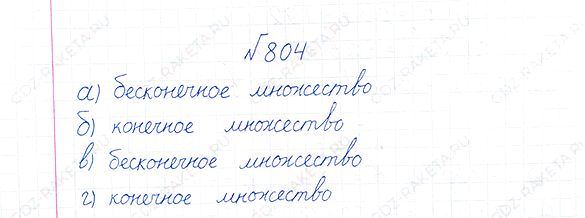 №804
а) бесконечное множество
б) конечное множество
в) бесконечное множество
г) конечное множество